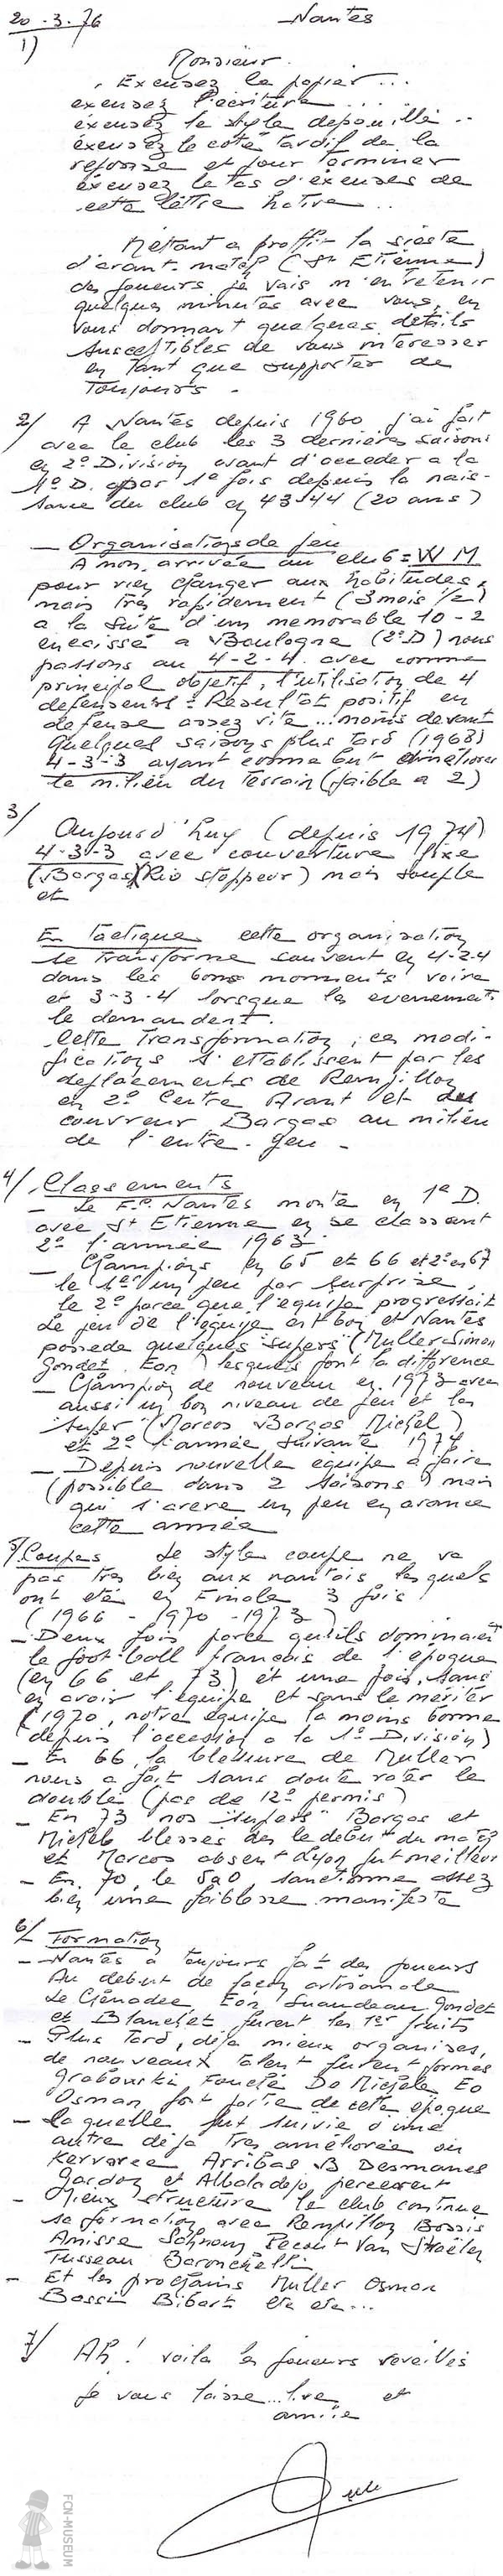 20.3.76 Nantes
1)
Monsieur.
Excusez le papier...
excusez l'écriture...
excusez le style dépouillé..
excusez le coté tardif de la
reponse et pour terminer
excusez le tas d'excuses de
cette lettre hative..
Mettant a proffit la sieste
d'avant-match (St Etienne)
des joueurs je vais m'entretenir
quelques minutes avec vous, en
vous donnant quelques details
susceptibles de vous interesser
en tant que supporter de
toujours.
2/ A Nantes depuis 1960 j'ai fait
avec le club les 3 dernières saisons
en 2° Division avant d'acceder a la
1° D. pour 1° fois depuis la nais-
sance du club en 43-44 (20 ans)
— Organisations de jeu
A mon arrivée au club = W M
pour rien changer aux habitudes,
mais tres rapidement (3 mois 1/2)
a la suite d'un memorable 10-2
encaissé a Boulogne (2°D) nous
passons au 4-2-4 avec comme
principal objectif, l'utilisation de 4
defenseurs = Resultat positif en
defense assez vite... moins devant
Quelques saisons plus tard (1968)
4-3-3 ayant comme but d'améliorer
le milieu du terrain (faible a 2)
3/ Aujourd'huy (depuis 1974)
4-3-3 avec couverture fixe
(Bargas)(Rio stoppeur) mais souple
et
En tactique cette organisation
se transforme souvent en 4-2-4
dans les bons moments voire
et 3-3-4 lorsque les evenements
le demandent.
Cette transformation, ces modi-
fications s'etablissent par les
deplacements de Rampillon
en 2° Centre Avant et du
couvreur Bargas au milieu
de l'entre-jeu -
4/ Classements
- Le F.C. Nantes monte en 1° D.
avec St Etienne en se classant
2° l'année 1963.
— Champions en 65 et 66 et 2° en 67
le 1er un peu par surprise,
le 2° parce que l'equipe progressait
Le jeu de l'equipe est bon et Nantes
possede quelques "supers" (Muller Simon
Gondet Eon) lesquels font la difference
— Champion de nouveau en 1973 avec
aussi un bon niveau de jeu et les
"super" (Marcos Bargas Michel)
et 2° l'année suivante 1974
— Depuis nouvelle equipe a faire
(possible dans 2 saisons) mais
qui s'avere un peu en avance
cette année
5/ Coupes Le style coupe ne va
pas tres bien aux nantais lesquels
ont été en Finale 3 fois
(1966 - 1970 - 1973)
— Deux fois parce qu'ils dominaient
le foot-ball francais de l'epoque
(en 66 et 73) et une fois, sans
en avoir l'equipe et sans le meriter
(1970, notre equipe la moins bonne
depuis l'accession a la 1° Division)
— En 66, la blessure de Muller
nous a fait sans doute rater le
doublé (pas de 12° permis)
— En 73 nos "supers" Bargas et
Michel blessés des le debut du match
et Marcos absent Lyon fut meilleur
— En 70, le 5 a 0, sanctionne assez
bien une faiblesse manifeste
6/ Formation
— Nantes a toujours fait des joueurs
Au debut de façon artisanale
Le Chenadec, Eon, Suaudeau Gondet
et Blanchet furent les 1er fruits
— Plus tard, deja mieux organises,
de nouveaux talent furent formes
Grabowski Fouché De Michele Eo
Osman font partie de cette epoque
— laquelle fut suivie d'une
autre deja tres ameliorée ou
Kervarec Arribas B Desmanes
Gardon et Albaladejo percerent
— Mieux structuré le club continue
sa formation avec Rampillon Bossis
Amisse Sahnoun Pecout Van Straelen
Tusseau Baronchelli
— Et les prochains Muller Osman
Bossis Bibart etc etc...
7/ Ah! voila les joueurs reveillés
je vous laisse... et
amitié
FCN-MUSEUM